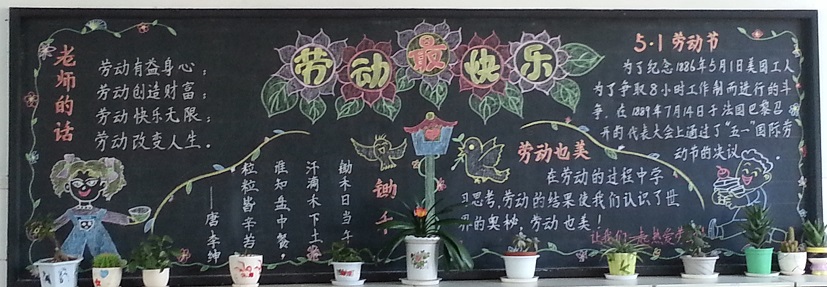 劳动最快乐
老师的话
劳动有益身心；
劳动创造财富；
劳动快乐无限；
劳动改变人生。
锄禾
锄木日当午
汗滴木下土
谁知盘中餐，
粒粒皆辛苦
——唐·李绅
劳动也美
在劳动的过程中学
思考，劳动的结果使我们认识了世
界的奥秘，劳动也美！
让我们一起热爱劳
5·1劳动节
为了纪念1886年5月1日美国工人
为了争取8小时工作制而进行的斗
争，在1889年7月14日于法国巴黎召
开的代表大会上通过了“五一”国际劳
动节的决议。